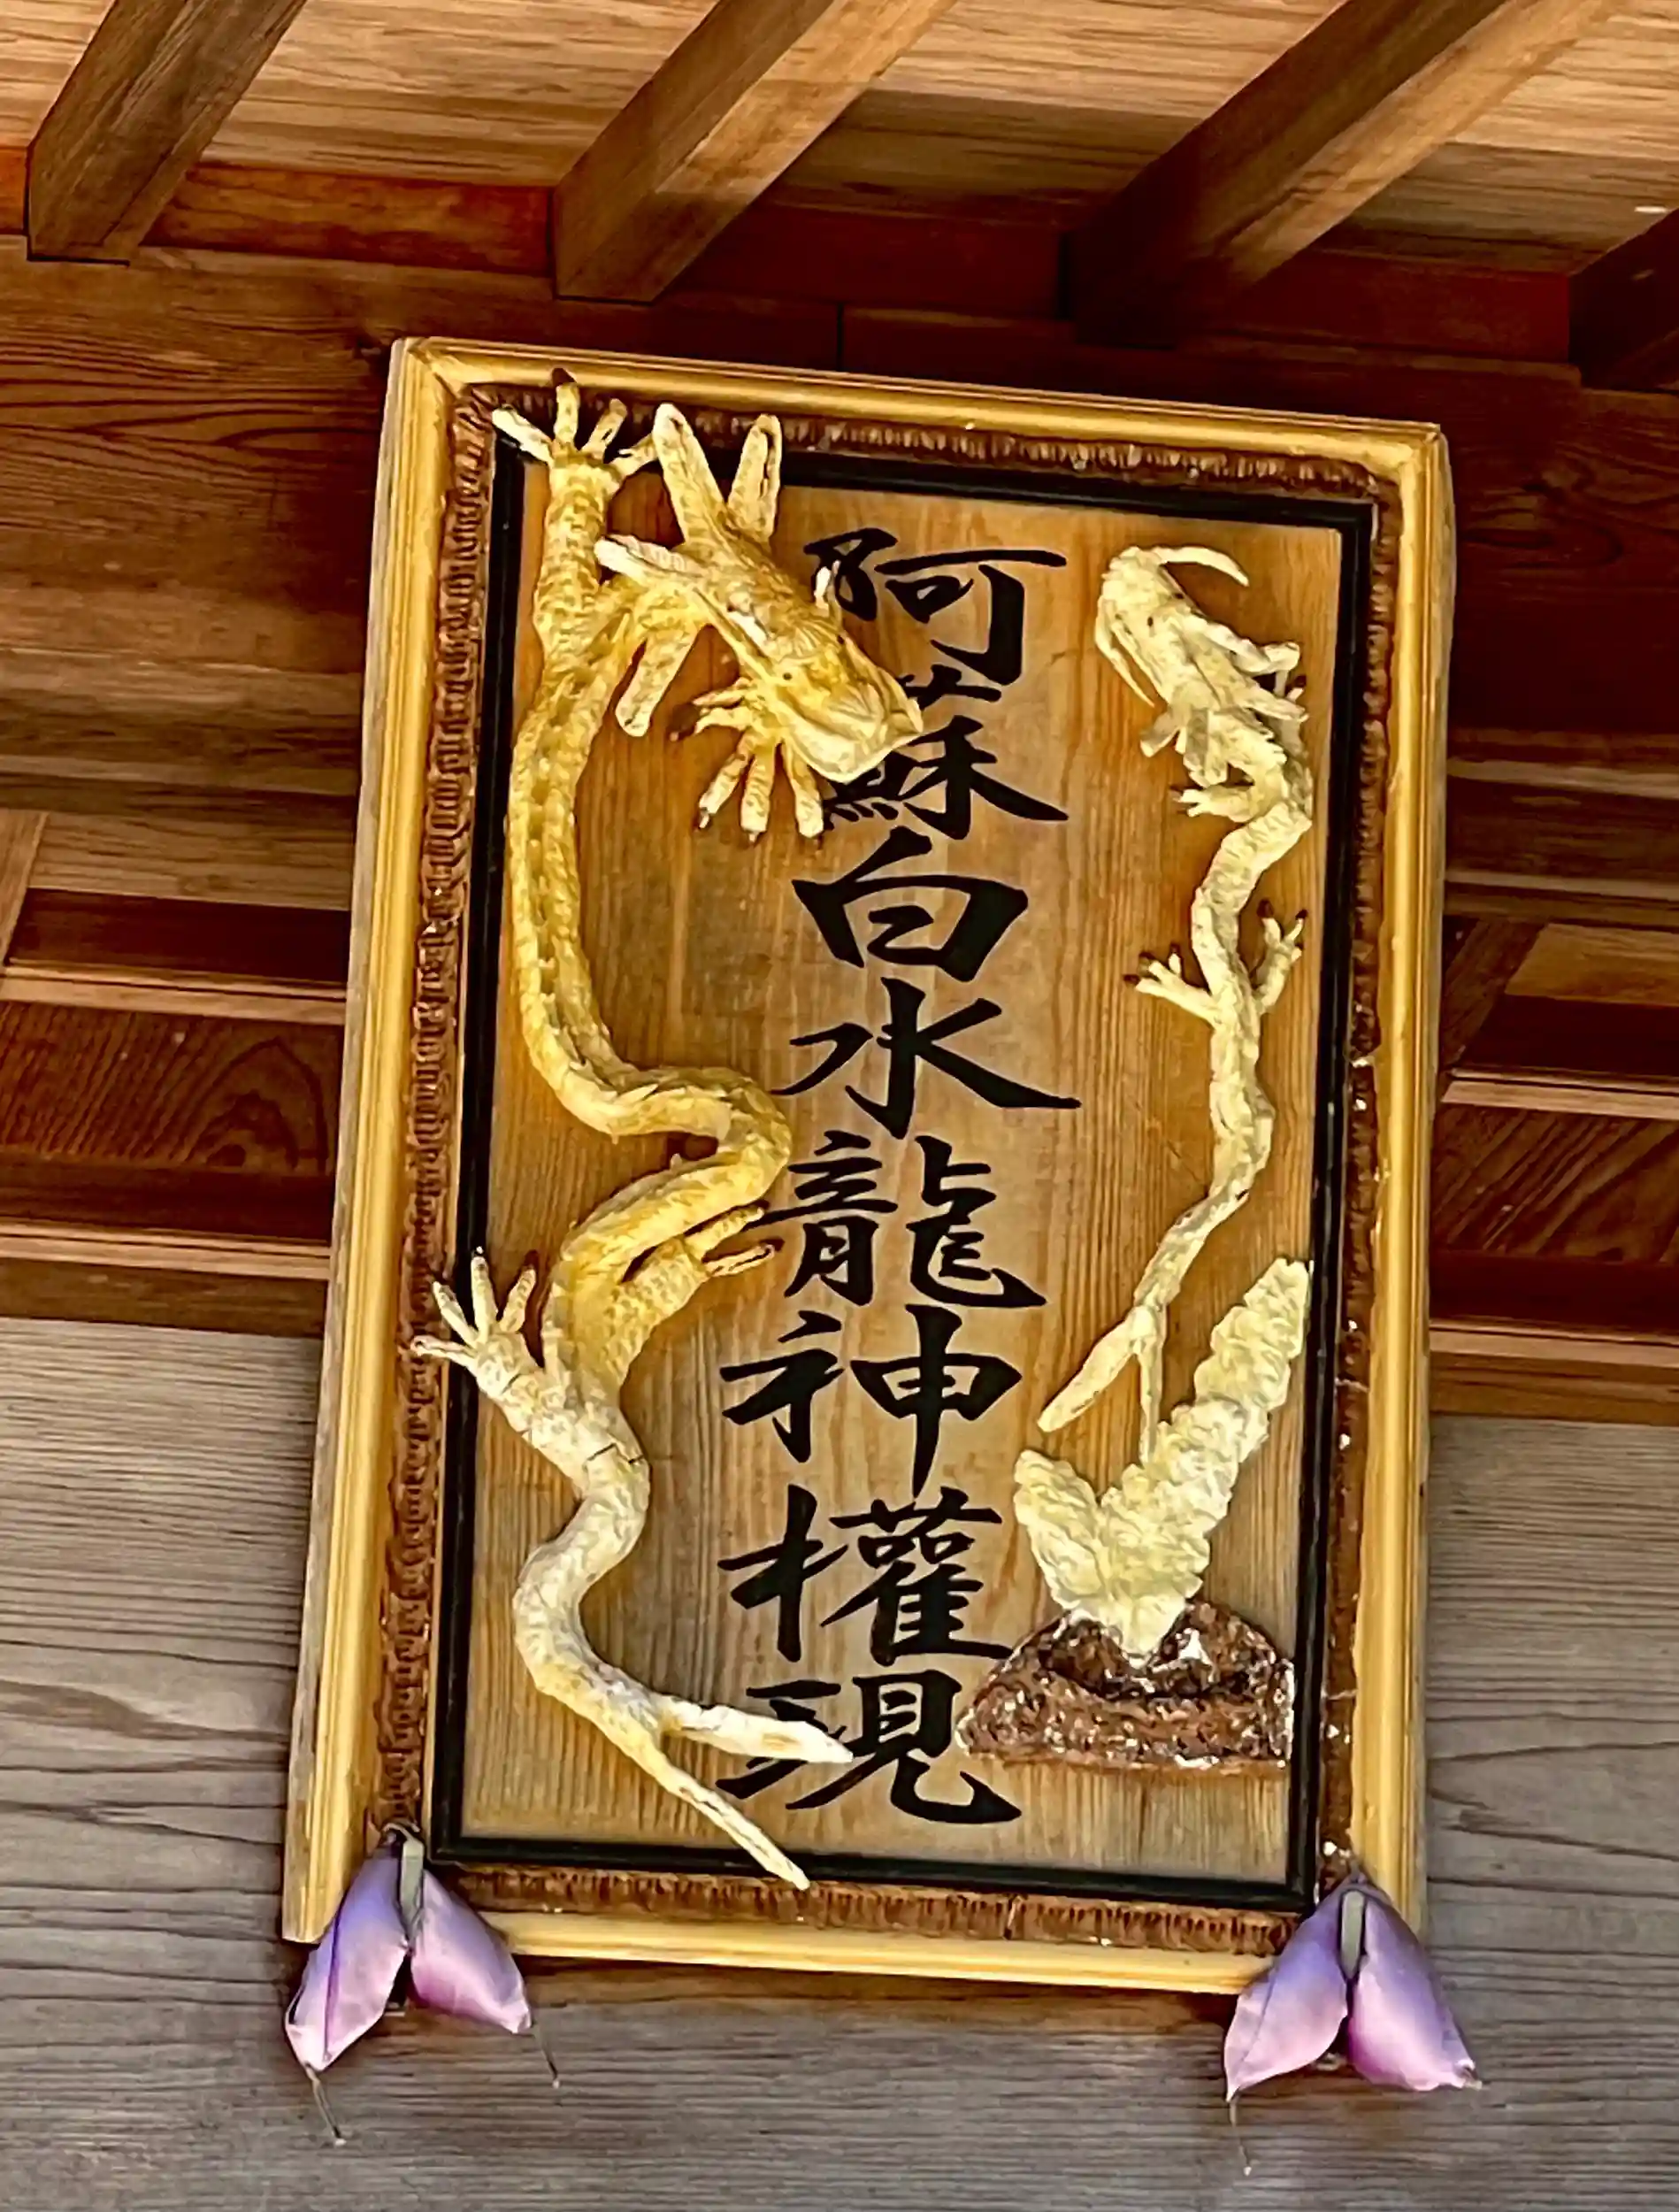 阿蘇白水龍神權現